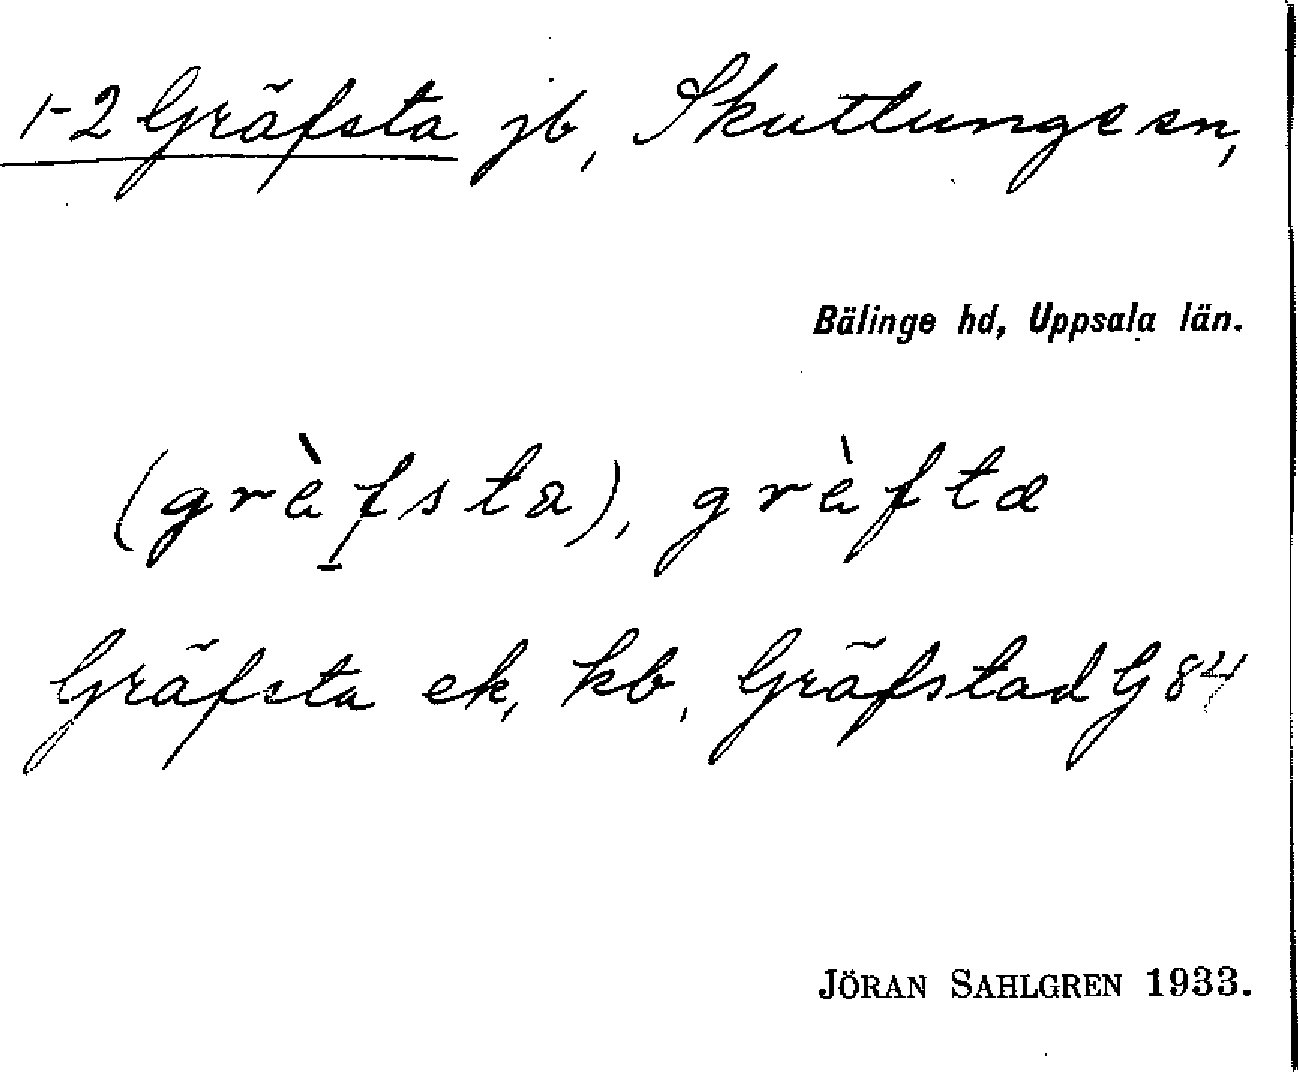 1-2 Gräfsta jb, Skuttunge sn,
Bälinge hd, Uppsala län.
(grèfsta), grèfta
Gräfsta ek, kb, Gräfstad G 84
JÖRAN SAHLGREN 1933.